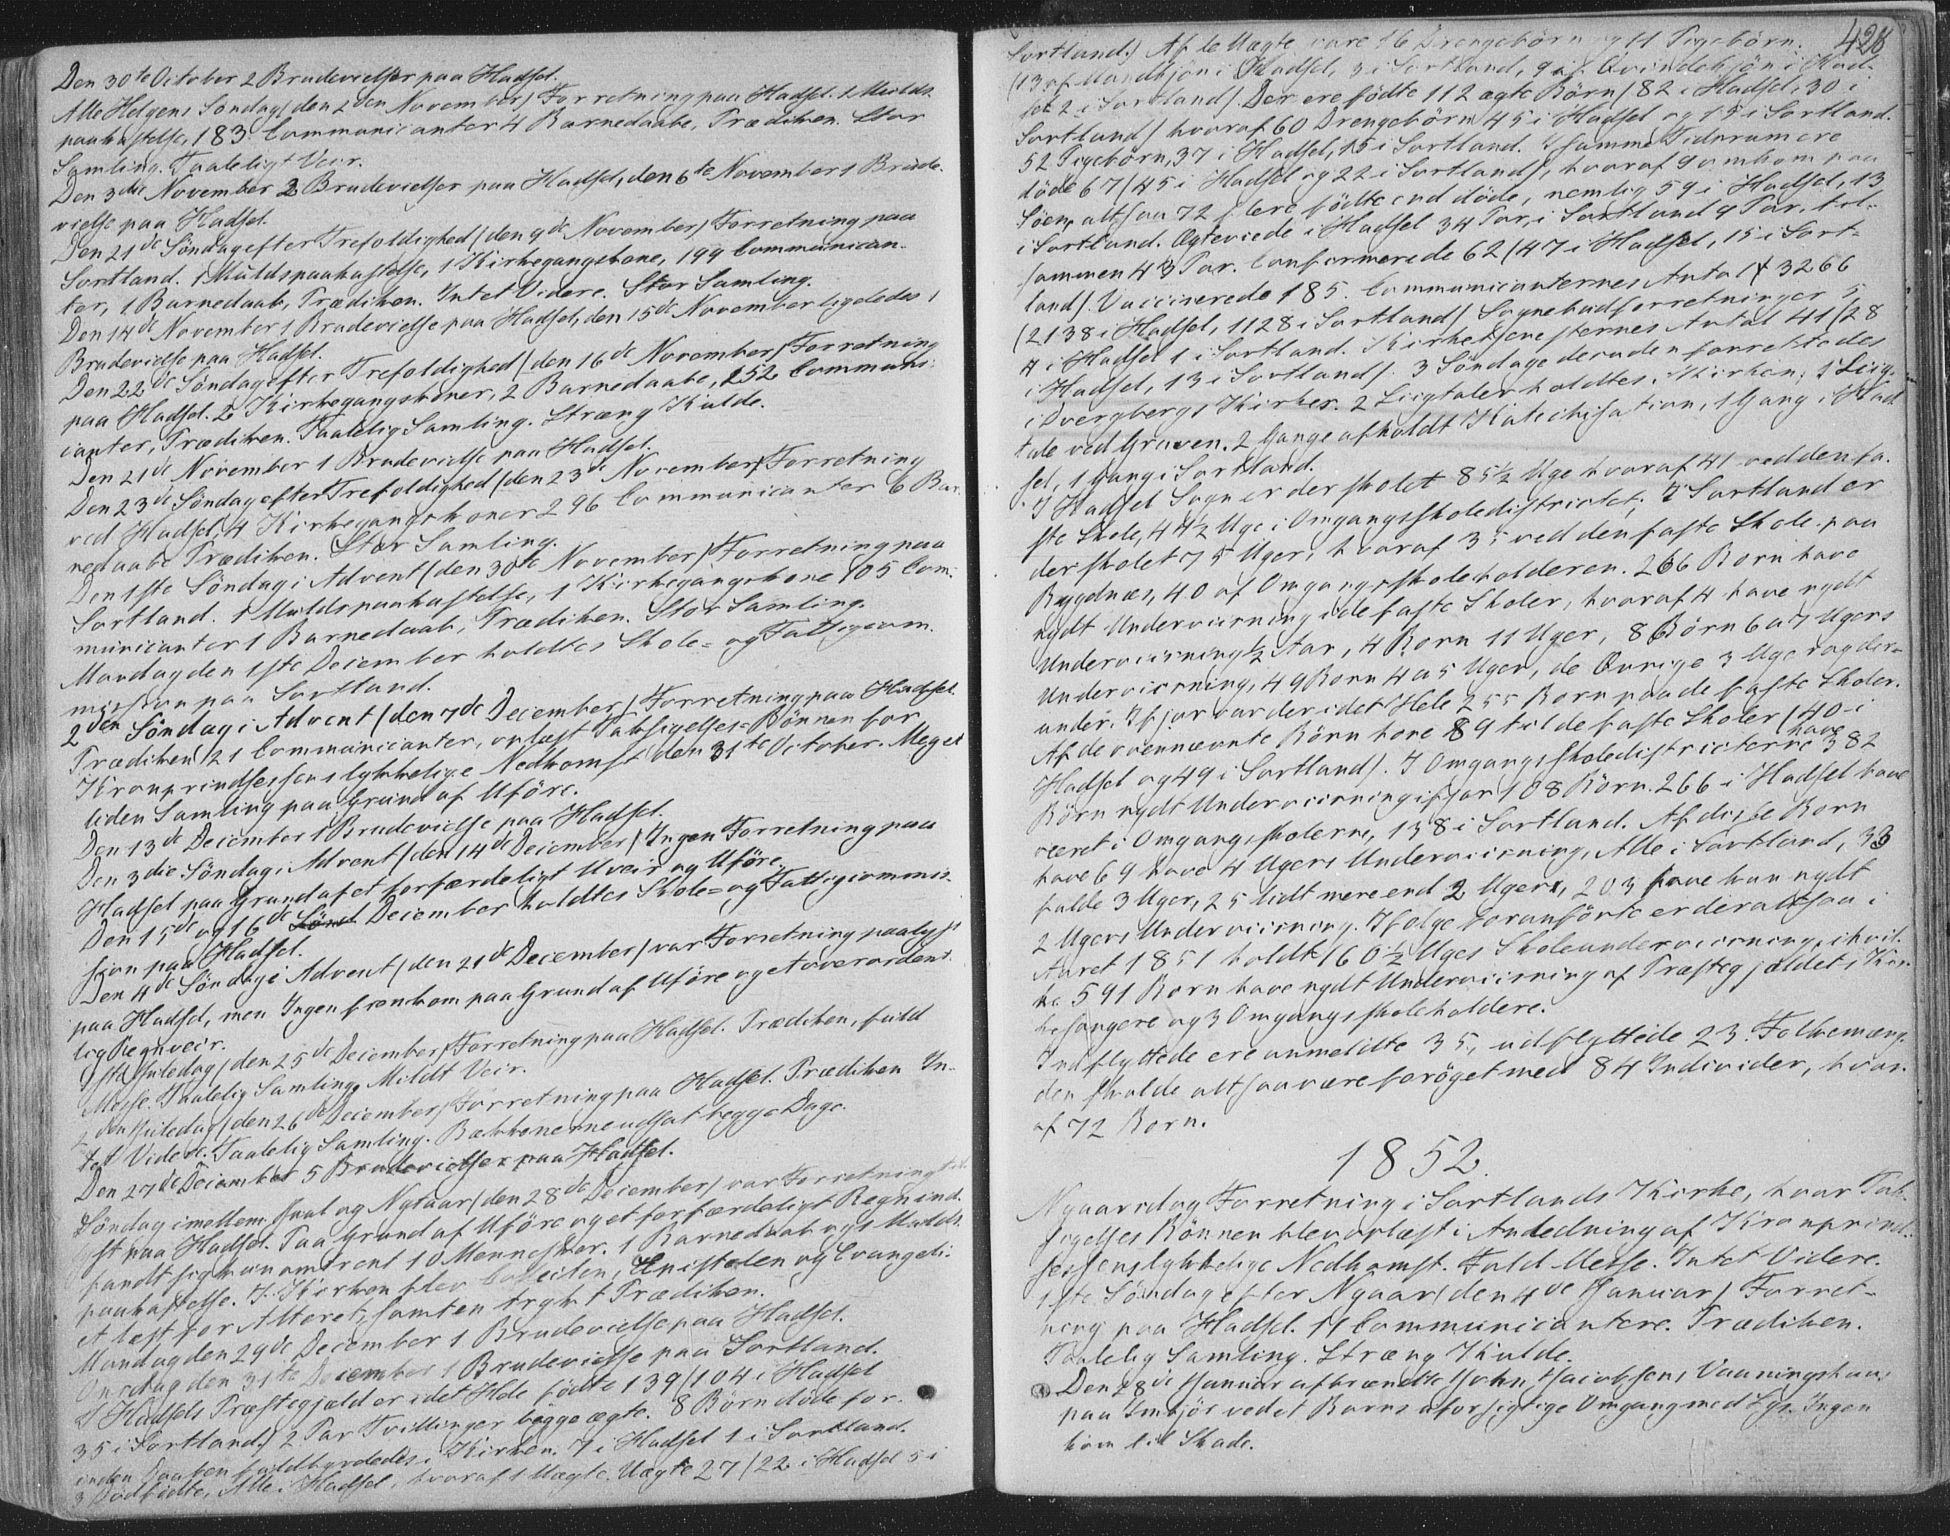 Den 30te October 2 Brudevielser paa Hadsel.
Alle Helgens Søndag (den 2den November) Forretning paa Hadsel. 1 Mulds-
paakastelse, 183 Communicanter 4 Barnedaabe, Prædiken. Stor
Samling. Taaleligt Veir.
Den 3die November 2 Brudevielser paa Hadsel, den 6te November 1 Brude-
vielse paa Hadsel.
Den 21de Søndag efter Trefoldighed (den 9de November) Forretning paa
Sortland. 1 Muldspaakastelse, 1 Kirkegangskone, 199 Communican-
ter, 1 Barnedaab, Prædiken. Intet Videre. Stor Samling.
Den 14de November 1 Brudevielse paa Hadsel, den 15de November ligeledes 1
Brudevielse paa Hadsel.
Den 22de Søndag efter Trefoldighed (den 16de November) Forretning
paa Hadsel. 2 Kirkegangskoner, 2 Barnedaabe, 252 Communi-
canter, Prædiken. Taalelig Samling. Stræng Kulde.
Den 21de November 1 Brudevielse paa Hadsel.
Den 23de Søndag efter Trefoldighed (den 23de November) Forretning
ved Hadsel, 4 Kirkegangskoner 296 Communicanter 6 Bar-
nedaabe Prædiken. Stor Samling.
Den 1ste Søndag i Advent (den 30te November) Forretning paa
Sortland. 1 Muldspaakastelse, 1 Kirkegangskone 105 Com-
municanter 1 Barnedaab, Prædiken. Stor Samling.
Mandag den 1ste December holdtes Skole- og Fattigcom-
mission paa Sortland.
2den Søndag i Advent (den 7de December) Forretning paa Hadsel.
Prædiken 121 Communicanter, oplæst Taksigelses-Bønnen for
Kronprindsessens lykkelige Nedkomst den 31te October. Meget
liden Samling paa Grund af Uføre.
Den 13de December 1 Brudevielse paa Hadsel.
Den 3die Søndag i Advent (den 14de December) Ingen Forretning paa
Hadsel paa Grund af et forfærdeligt Uveir og Uføre.
Den 15de og 16de Sønd December holdtes Skole- og Fattigcommis-
sion paa Hadsel.
Den 4de Søndag i Advent (den 21de December) var Forretning paalyst
paa Hadsel, men Ingen fremkom paa Grund af Uføre og et overordent-
lig Regnveir.
1ste Juledag (den 25de December) Forretning paa Hadsel. Prædiken, fuld
Messe. Taalelig Samling. Mildt Veir.
2den Juledag (den 26de December) Forretning paa Hadsel. Prædiken In-
tet Videre. Taalelig Samling. Bækkenerne udsat begge Dage.
Den 27de December 5 Brudevielser paa Hadsel.
Søndag imellem Juul og Nytaar (den 28de December) var Forretning
lyst paa Hadsel. Paa Grund af Uføre og et forfærdeligt Regn ind-
fandt sig kun omtrent 10 Mennesker. 1 Barnedaab og 1 Mulds-
paakastelse. I Kirken blev Collecten, Epistelen og Evangeli-
et læst for Alteret, samt en trykt Prædiken.
Mandag den 29de December 1 Brudevielse paa Hadsel.
Onsdag den 31te December 1 Brudevielse paa Sortland.
I Hadsels Præstegjæld er i det Hele fødte 139 (104 i Hadsel
35 i Sortland.) 2 Par Tvillinger begge ægte. 8 Børn døde for-
inden Daaben fuldbyrdedes i Kirken. 7 i Hadsel 1 i Sortland.
3 Dødfødte, Alle i Hadsel, hvoraf 1 Uægte. Uægte 27 (22 i Hadsel 5 i
428
Sortland.) Af de Uægte vare 16 Drengebørn og 11 Pigebørn.
(13 af Mandkjøn i Hadsel, 3 i Sortland, 9 af Qvindekjøn i Had-
sel 2 i Sortland). Der ere fødte 112 ægte Børn (82 i Hadsel, 30 i
Sortland) hvoraf 60 Drengebørn 45 i Hadsel og 15 i Sortland.
52 Pigebørn, 37 i Hadsel, 15 i Sortland. I samme Tidsrum ere
døde 67 (45 i Hadsel og 22 i Sortland), hvoraf 9 omkom paa
Søen, altsaa 72 flere fødte end døde, nemlig 59 i Hadsel, 13
i Sortland. Ægteviede i Hadsel 34 Par, i Sortland 9 Par, til-
sammen 43 Par. Confirmerede 62 (47 i Hadsel, 15 i Sort-
land). Vaccinerede 185. Communicanternes Antal 3266
(2138 i Hadsel, 1128 i Sortland) Sognebudsforretninger 5
4 i Hadsel 1 i Sortland. Kirketjenesternes Antal 41 (28
i Hadsel, 13 i Sortland). 3 Søndage desuden forrettedes
i Dverbergs Kirker. 2 Liigtaler holdtes i Kirken, 1 Liig-
tale ved Graven. 2 Gange afholdt Katechisation, 1 Gang i Had-
sel, 1 Gang i Sortland.
I Hadsel Sogn er der skolet 85½ Uge hvoraf 41 ved den fa-
ste Skole, 44½ Uge i Omgangsskoledistrictet; I Sortland er
der skolet 75 Uger, hvoraf 35 ved den faste Skole paa
Bygdnæs, 40 af Omgangsskoleholderen. 266 Børn have
nydt Underviisning i de faste Skoler, hvoraf 4 have nydt
Underviisning ½ Aar, 4 Børn 11 Uger, 8 Børn 6 a 7 Ugers
Underviisning, 49 Børn 4 a 5 Uger, de Øvrige 3 Uger og der-
under. Ifjor var der i det Hele 255 Børn paa de faste Skoler.
Af de ovennævnte Børn høre 89 til de faste Skoler (40 i
Hadsel og 49 i Sortland). I Omgangsskoledistricterne have 382
Børn nydt Underviisning ifjor 108 Børn. 266 i Hadsel have
været i Omgangsskolerne, 138 i Sortland. Af disse Børn
have 69 havt 4 Ugers Underviisning, Alle i Sortland, 33
fulde 3 Uger, 25 lidt mere end 2 Uger, 203 have kun nydt
2 Ugers Underviisning. Ifølge Foranførte er der altsaa i
Aaret 1851 holdt 160½ Uges Skoleunderviisning, i hvil-
ke 591 Børn have nydt Underviisning af Præstegjeldet i Kir-
kesangere og 3 Omgangsskoleholdere.
Indflyttede ere anmeldte 35, udflyttede 23. Folkemæng-
den skulde altsaa være forøget med 84 Individer, hvor-
af 72 Børn.
1852.
Nyaarsdag Forretning i Sortlands Kirke, hvor Tak-
sigelses Bønnen blev oplæst i Andledning af Kronprind-
sessens lykkelige Nedkomst. Fuld Messe. Intet Videre.
1ste Søndag efter Nyaar (den 4de Januar) Forret-
ning paa Hadsel. 11 Communicantere. Prædiken.
Taalelig Samling. Stræng Kulde.
Den 8de Januar afbrændte John Jacobsens Vaaningshuus
paa ved et Barns uforsigtige Omgang med Lys. Ingen
kom til Skade.